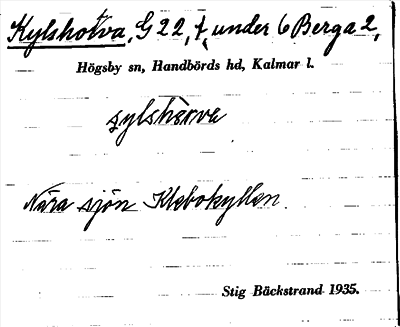 Kylshotva, G 22, t. under 6 Berga 2,
Högsby sn, Handbörds hd, Kalmar l.
Nära sjön Klebokyllen.
Stig Bäckstrand 1935.